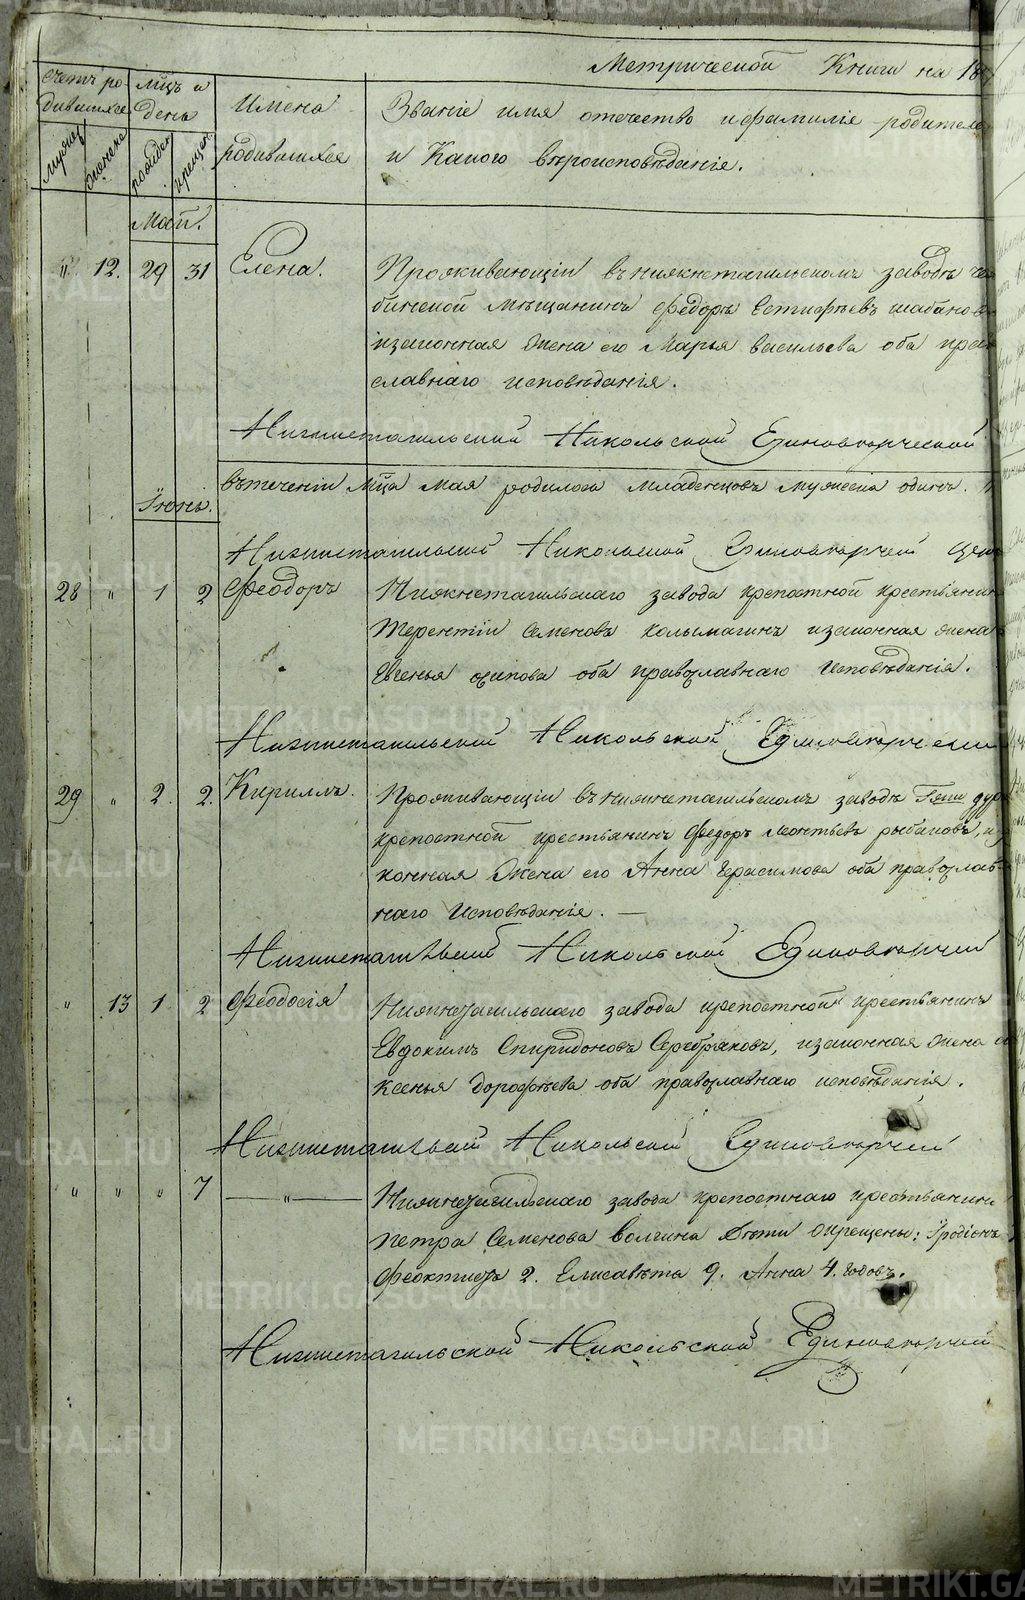 Метрической Книги на 18
Счетъ ро- Мцъ и
дившихся день Имена Званіе имя отечество и фамиліе родителей
мужеск женска рожден крещен родившихся и Какого вѣроисповѣданія.
Маій.
" 12. 29 31 Елена. Проживающій въ нижнетагильскомъ заводѣ че
бинской мѣщанинъ Федоръ Естифѣевъ шабанов
изаконная жена его Марья васильева оба прав
славнаго исповѣданія.
Нижнетагильский Никольской Единоверческой
въ теченіи Мца мая родилось младенцовъ мужеска одинъ.
Іюнь.
Нижнетагильской Никольской Единоверчей цер
28 " 1 2 Феодоръ Нижнетагильскаго завода крепостной крестьянин
Терентій Семеновъ колымагинъ изаконная жена
Евгенья осипова оба православнаго исповѣданія.
Нижнетагильской Никольской Единоверчески
29 " 2. 2. Кириллъ. Проживающій въ нижнетагильскомъ заводѣ
крепостной крестьянинъ Федоръ леонтьевъ рыбаковъ, и за
конная жена его Анна Герасимова оба православ
наго исповѣданія. —
Нижнетагильской Никольской Единоверчей
" 13 1 2 Феодосія Нижнетагильскаго завода крепостной крестьянинъ
Евдокимъ Спиридоновъ Серебряковъ, изаконная жена
Ксенья дорофѣева оба православнаго исповѣданія.
Нижнетагильской Никольской Единоверчей
" " " 7 — " — Нижнетагильскаго завода крепостнаго крестьянина
Петра Семенова волгина дѣти окрещены: Іродіонъ
Феоктиста 2. Елисавѣта 9. Анна 4. годовъ.
Нижнетагильской Никольской Единоверчей
METRIKI.GASO-URAL.RU